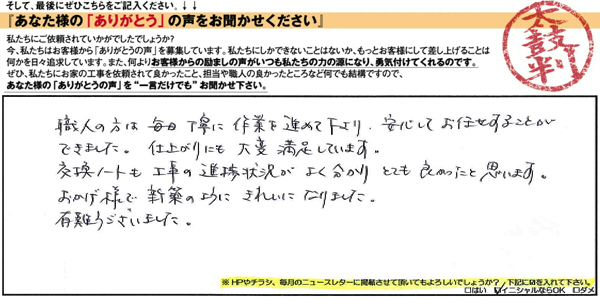 そして、最後にぜひこちらをご記入ください。↓↓
『あなた様の「ありがとう」の声をお聞かせください』
私たちにご依頼されていかがでしたでしょうか？
今、私たちはお客様から「ありがとうの声」を募集しています。私たちにしかできないことはないか、もっとお客様にして差し上げることは
何かを日々追求しています。また、何よりお客様からの励ましの声がいつも私たちの力の源になり、勇気付けてくれるのです。
ぜひ、私たちにお家の工事を依頼されて良かったこと、担当や職人の良かったところなど何でも結構ですので、
あなた様の「ありがとうの声」を“一言だけでも”お聞かせ下さい。
太鼓判
職人の方は毎日丁寧に作業を進めて下さり、安心してお任せすることが
できました。仕上がりにも大変満足しています。
交換ノートも工事の進捗状況がよく分かりとても良かったと思います。
おかげ様で新築のようにきれいになりました。
有難うございました。
※HPやチラシ、毎月のニュースレターに掲載させて頂いてもよろしいでしょうか？／下記に☑を入れて下さい。
□はい ☑イニシャルならOK □ダメ